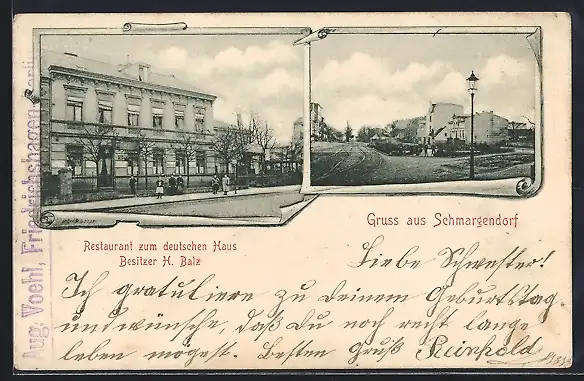 Gruss aus Schmargendorf
Restaurant zum deutschen Haus
Besitzer H. Balz
Liebe Schwester!
Ich gratuliere zu Deinem Geburtstag
und wünsche, daß Du noch recht lange
leben mögest. Besten Gruß Reinhold
Aug. Voehl, Friedrichshagen